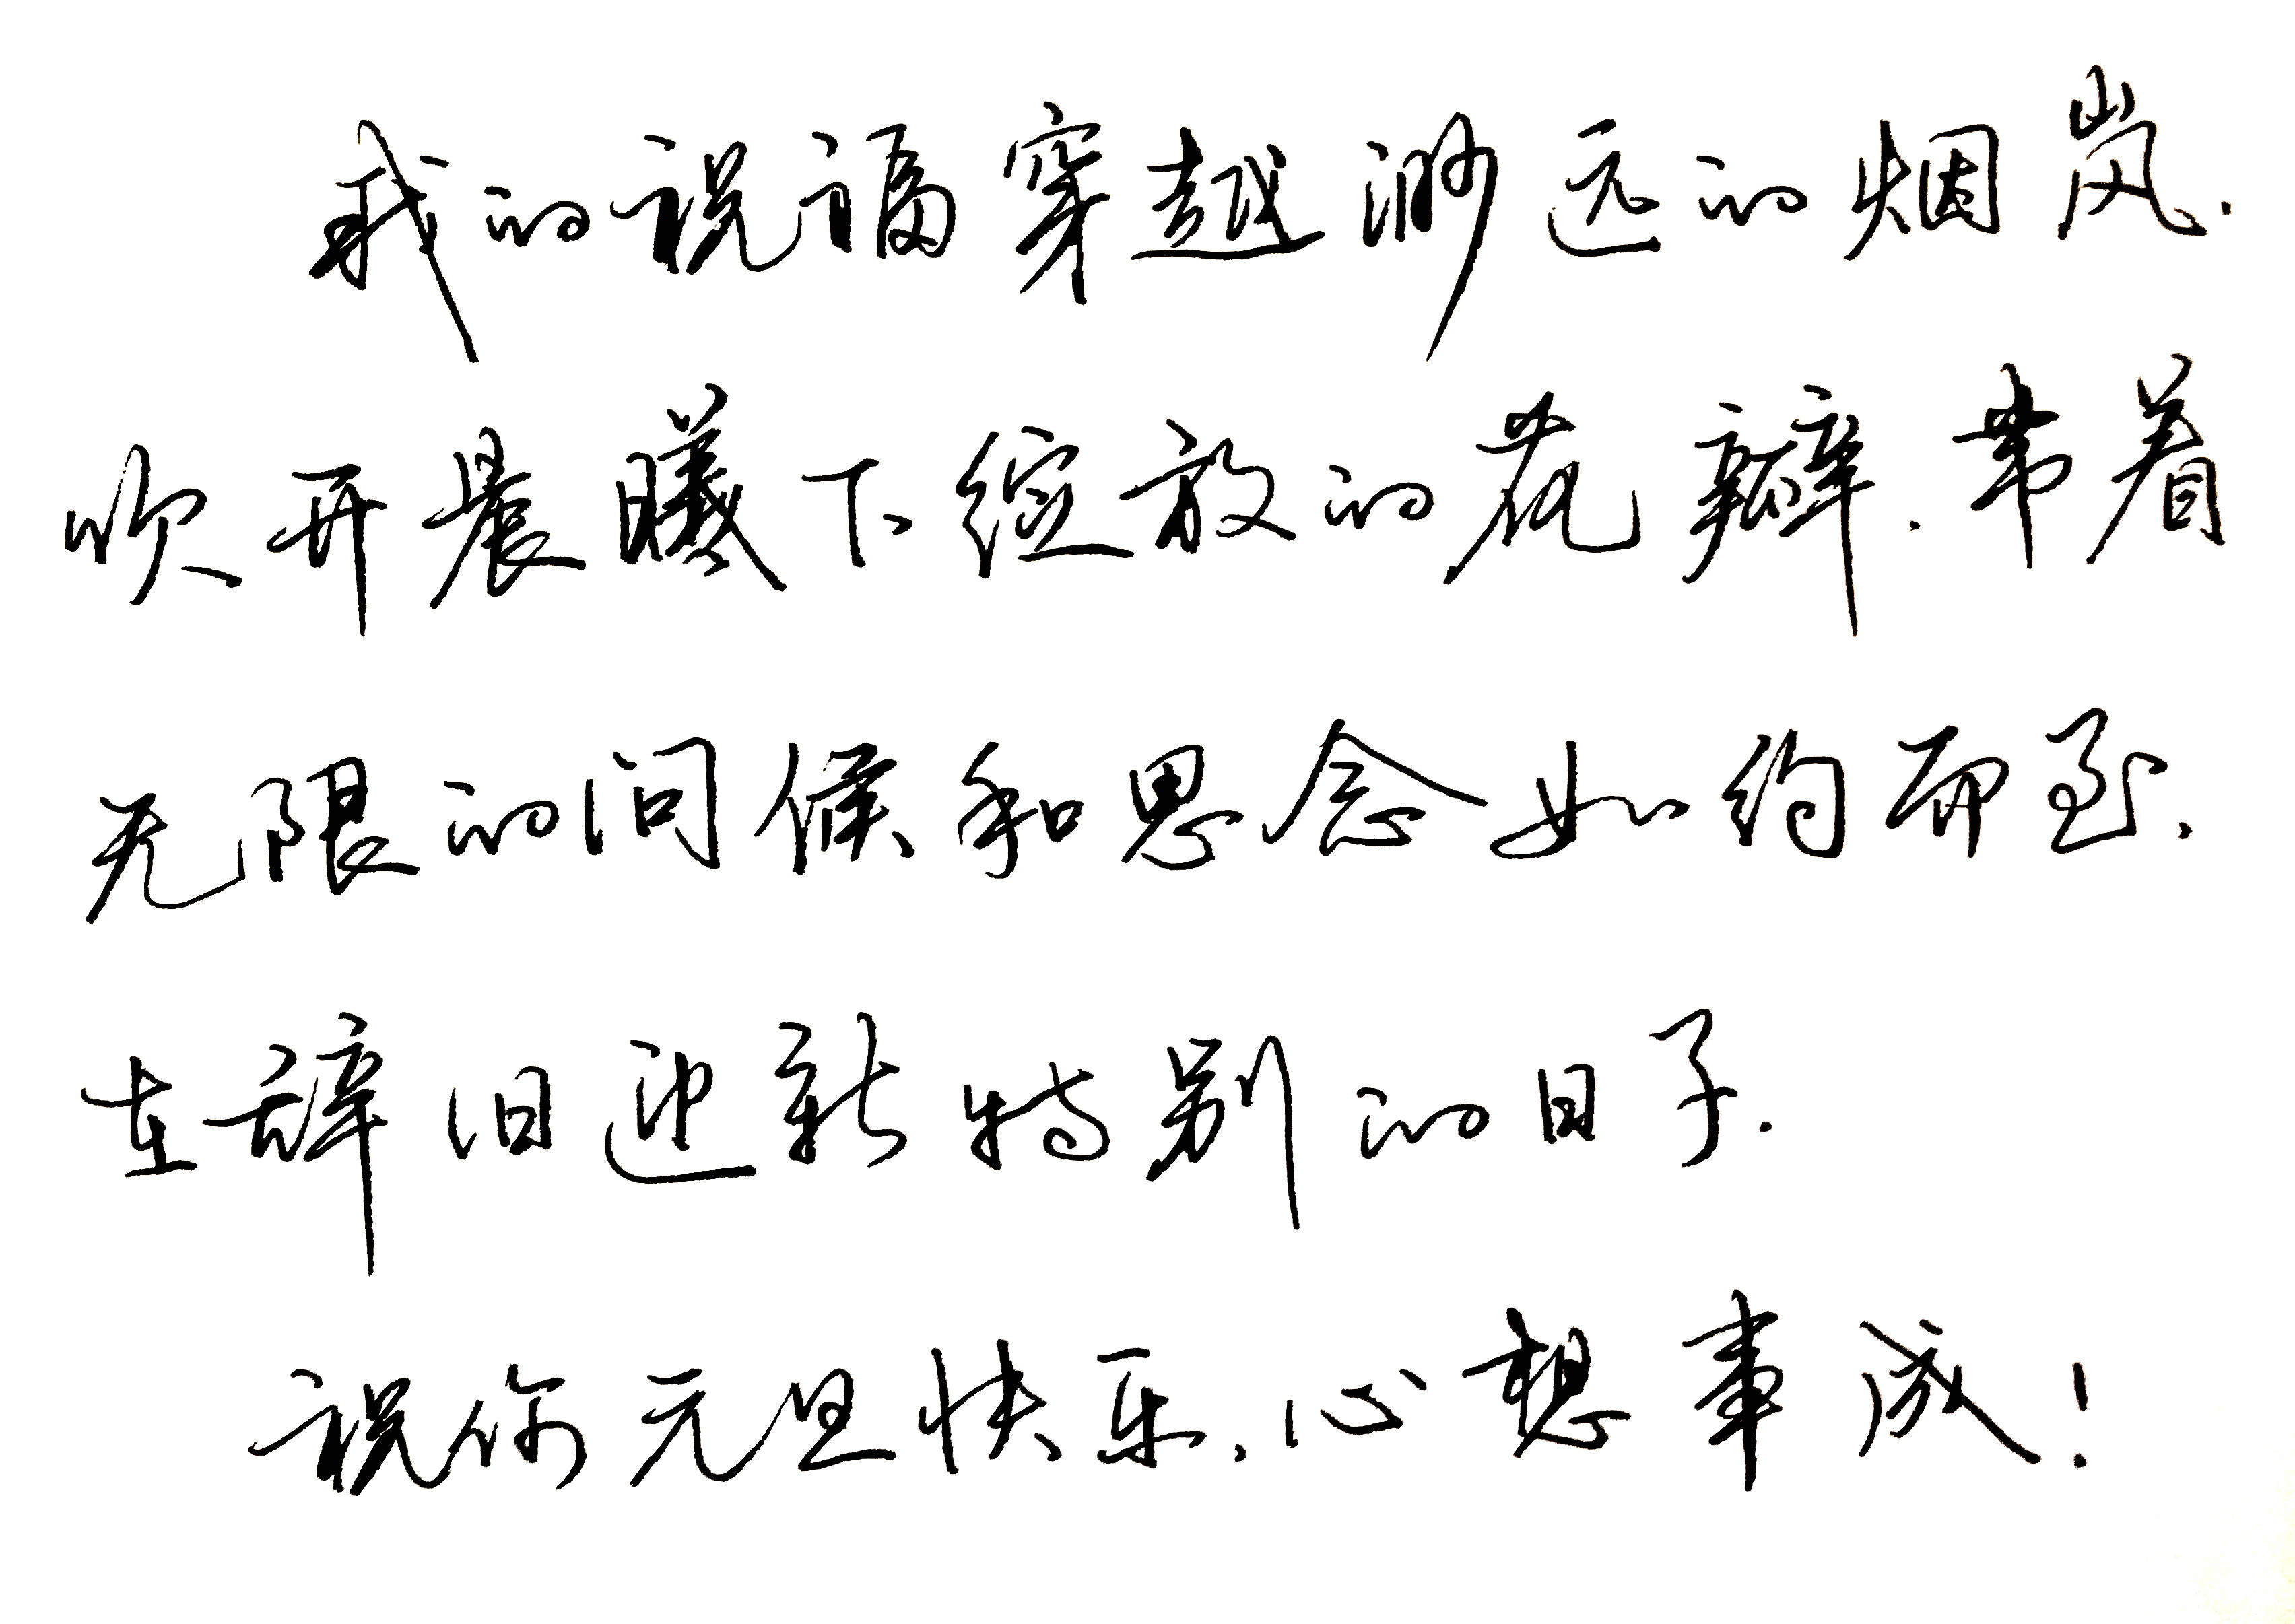 我的祝福穿越渺远的烟岚.
吹开晨曦下绽放的花瓣.带着
无限的问候和思念如约而至.
在辞旧迎新特别的日子.
祝你元旦快乐.心想事成!